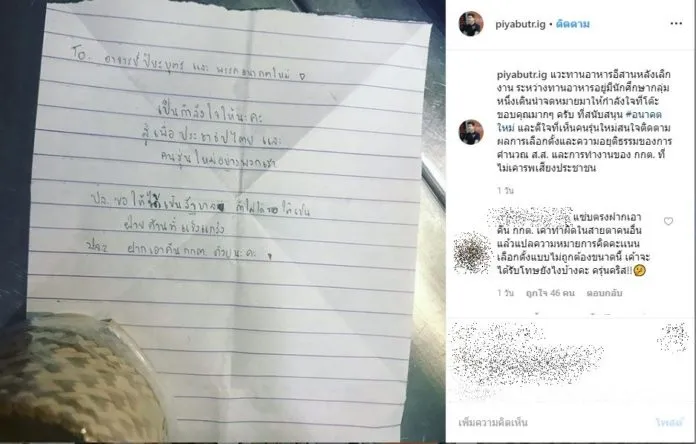 TO: อาจารย์ปิยะบุตร และ พรรคอนาคตใหม่
เป็นกำลังใจให้นะคะ
สู้เพื่อประชาธิปไตย และ
คนรุ่นใหม่อย่างพวกเรา
ปล. ขอให้ได้เป็นรัฐบาล ถ้าไม่ได้ขอให้เป็น
ฝ่ายค้านที่แข็งแกร่ง
ปล2 ฝากเอาคืน กกต. ด้วยนะคะ
piyabutr.ig • ติดตาม
piyabutr.ig แวะทานอาหารอีสานหลังเลิก
งาน ระหว่างทานอาหารอยู่มีนักศึกษากลุ่ม
หนึ่งเดินนำจดหมายมาให้กำลังใจที่โต๊ะ
ขอบคุณมากๆ ครับ ที่สนับสนุน #อนาคต
ใหม่ และดีใจที่เห็นคนรุ่นใหม่สนใจติดตาม
ผลการเลือกตั้งและความอยุติธรรมของการ
คำนวณ ส.ส. และการทำงานของ กกต. ที่
ไม่เคารพเสียงประชาชน
1 วัน
แซ่บตรงฝากเอา
คืน กกต. เค้าทำผิดในสายตาคนอื่น
แล้วแปลความหมายการคิดคะแนน
เลือกตั้งแบบไม่ถูกต้องขนาดนี้ เค้าจะ
ได้รับโทษยังไงบ้างคะ ครุ่นคริส!!🤣
1 วัน ถูกใจ 46 คน ตอบกลับ
เพิ่มความคิดเห็น โพสต์